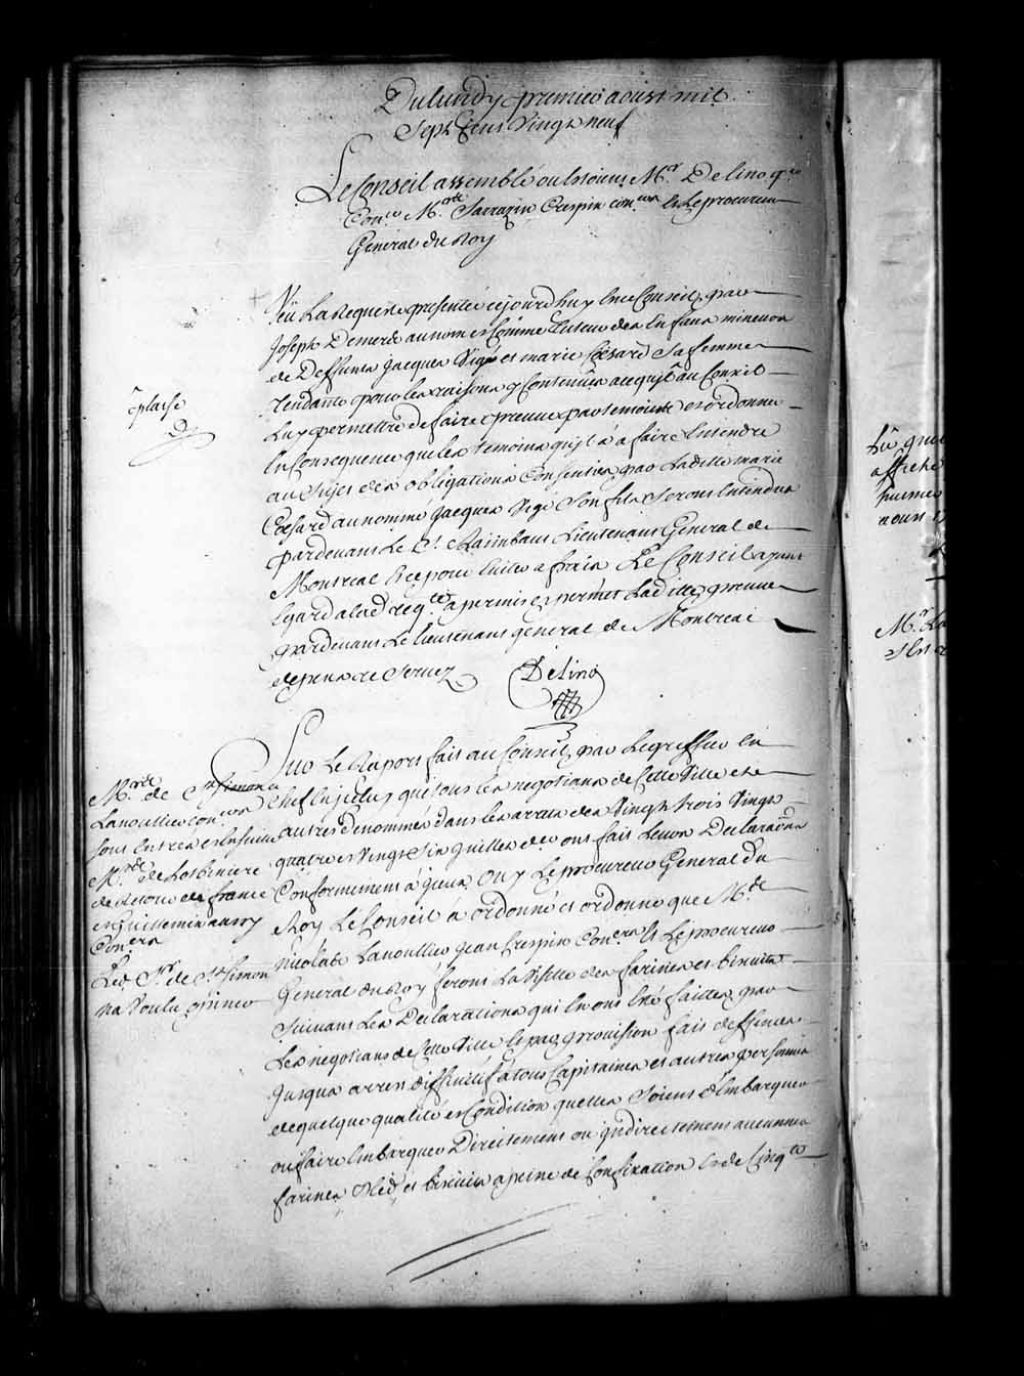 Du lundy premier aoust mil
Sept Cens Vingt neuf
Le Conseil assemblé ou etoient Mrs Delino pr
Conr Mres Sarrazin Crespin conrs & Le procureur
General du Roy
Veu La Requeste presentée cejourdhuy en ce Conseil par
Joseph Demers au nom et Comme Tuteur des Enfans mineurs
de Deffunts Jacques Vigé et marie Cesard Sa femme
Tendante pour les raisons y Contenües a ce qu'il plaise au Conseil
Luy permettre de faire preuve par temoins et ordonner
En Consequence que les temoins qu'il a a faire Entendre
au Sujet des obligations Consenties par Laditte marie
Cesard au nommé Jacques Vigé Son fils Seront Entendus
pardevant Le Sr Raimbaut Lieutenant General de
Montreal Le Conseil ayant
Egard a lad reqte a permis et permet Laditte preuve
pardevant Le lieutenant general de Montreal
depens reservez
Delino
plaise
Sur Le Raport fait au Conseil par Le greffier En
chef En jceluy que tous les negotians de Cette Ville et
autres denommés dans les arrets des Vingt trois Vingt
quatre et Vingt Six juillet dernr ont fait Leurs Declarãons
Conformement a jceux Ouy Le procureur General du
Roy Le Conseil a ordonné et ordonne que Me
Nicolas Lanoullier Jean Crespin Coners & Le procureur
General du Roy feront La Visitte des farines et biscuits
Suivant Les Declarations qui En ont Eté faittes par
Les negotians de Cette Ville & par provision fait deffenses
Jusqua arrest diffinitif a tous Capitaines et autres personnes
de quelque qualité et Condition quelles Soient d'Embarquer
ou faire Embarquer Directement ou jndirectement aucunnes
farines bleds et biscuits a peine de Confiscation & de Cinqte
Mres de St Simon &
Lanoullier conrs
sont Entrés et Ensuitte
Mre de Lotbiniere
de Retour de france
et Guillemin aussy
Coners
Led Sr de St Simon
na Voulu opiner